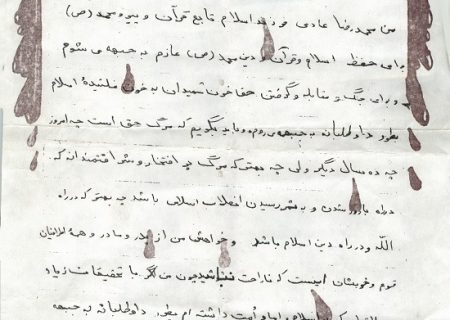 من محمدرضا عادی فرزند اسلام تابع قرآن و پیرو محمد (ص)
برای حفظ اسلام وقرآن و دین محمد (ص) عازم به جبهه می شوم
و برای جنگ و مقابله و گرفتن حق خون شهیدان به خون غلتیدهٔ اسلام
بطور داوطلبانه به جبهه میروم و باید بگویم که مرگ حق است چه امروز
چه ده سال دیگر ولی چه بهتر که مرگ پر افتخار و شرافتمندانه که
در راه بارور شدن و به ثمر رسیدن انقلاب اسلامی باشد چه بهتر که در راه
الله و در راه دین اسلام باشد و خواهش من از پدر و مادر و همهٔ اطرافیان
قوم و خویشان اینست که ناراحت نباشید چون من اگر با تحقیقات زیاد
که اسلام امام و امت داشته ام بطور داوطلبانه به جبهه